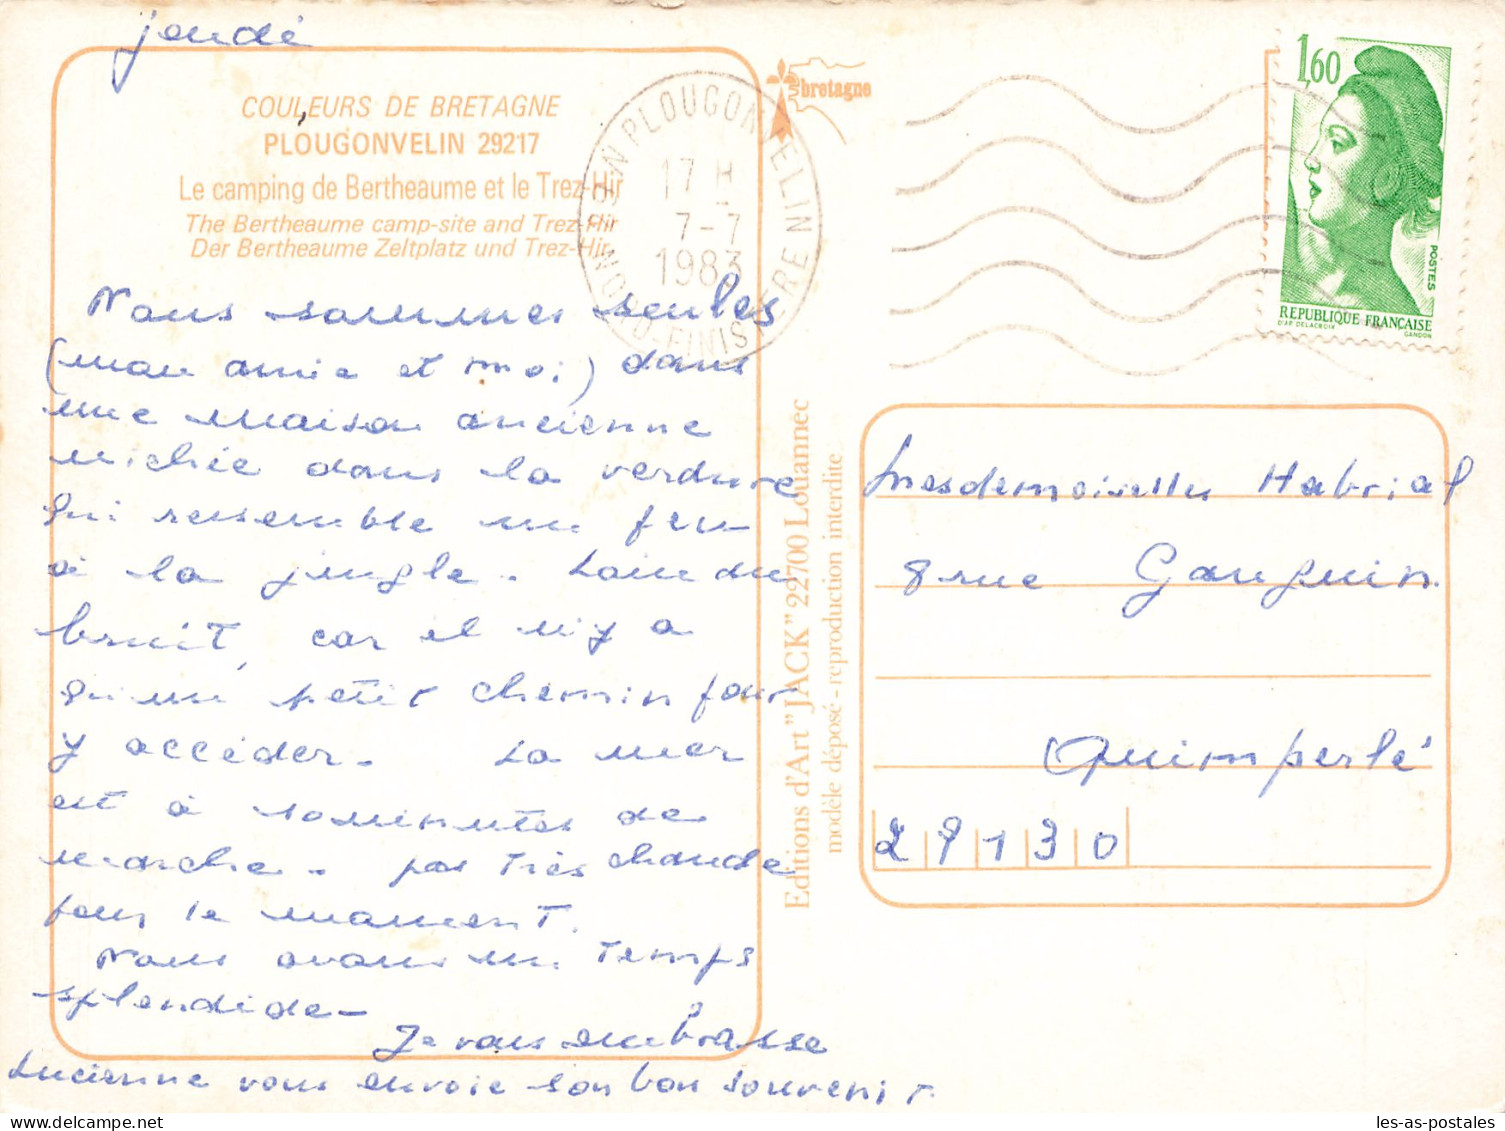 jeudi
COULEURS DE BRETAGNE
PLOUGONVELIN 29217
Le camping de Bertheaume et le Trez-Hir
The Bertheaume camp-site and Trez-Hir
Der Bertheaume Zeltplatz und Trez-Hir
Nous sommes seules
(mon amie et moi) dans
une maison ancienne
nichée dans la verdure
qui ressemble un peu
à la jungle. Loin du
bruit, car il n'y a
qu'un petit chemin pour
y accéder. La mer
est à 10 minutes de
marche. pas très chaude
pour le moment.
Nous avons un temps
splendide -
Je vous embrasse
Lucienne vous envoie son bon souvenir.
bretagne
PLOUGONVELIN
17 H
7-7
1983
NORD-FINISTERE
Editions d'Art "JACK" 22700 Louannec
modèle déposé - reproduction interdite
1,60
POSTES
REPUBLIQUE FRANCAISE
D'AP. DELACROIX GANDON
Mesdemoiselles Habrial
8 rue Gauguin
Quimperlé
29130
les-as-postales